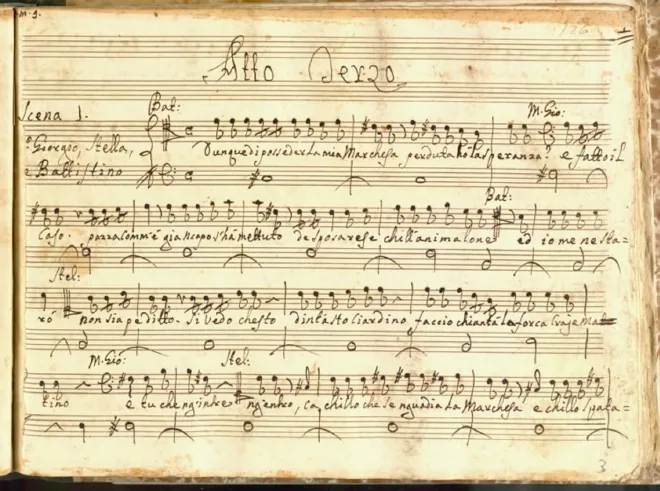 Atto Terzo
Scena 1.
Bat: M. Gio:
Giorgio, Stella,
e Battistino
Dunque di posseder la mia Marchesa perduta hò la speranza. e fatto il
Bat:
Caso. pazza comm'è già ncapo s'hà mettuto de sposarese chill'animalone ed io me ne sta=
Stel:
rò non sia pe ditto. Si vedo chesto dint'a sto Ciardino faccio chiantà la forca craje Mat=
M. Gio: Stel:
tino e tu che ng'intre ng'entro, ca chillo che se nguadia la Marchesa e chillo
3